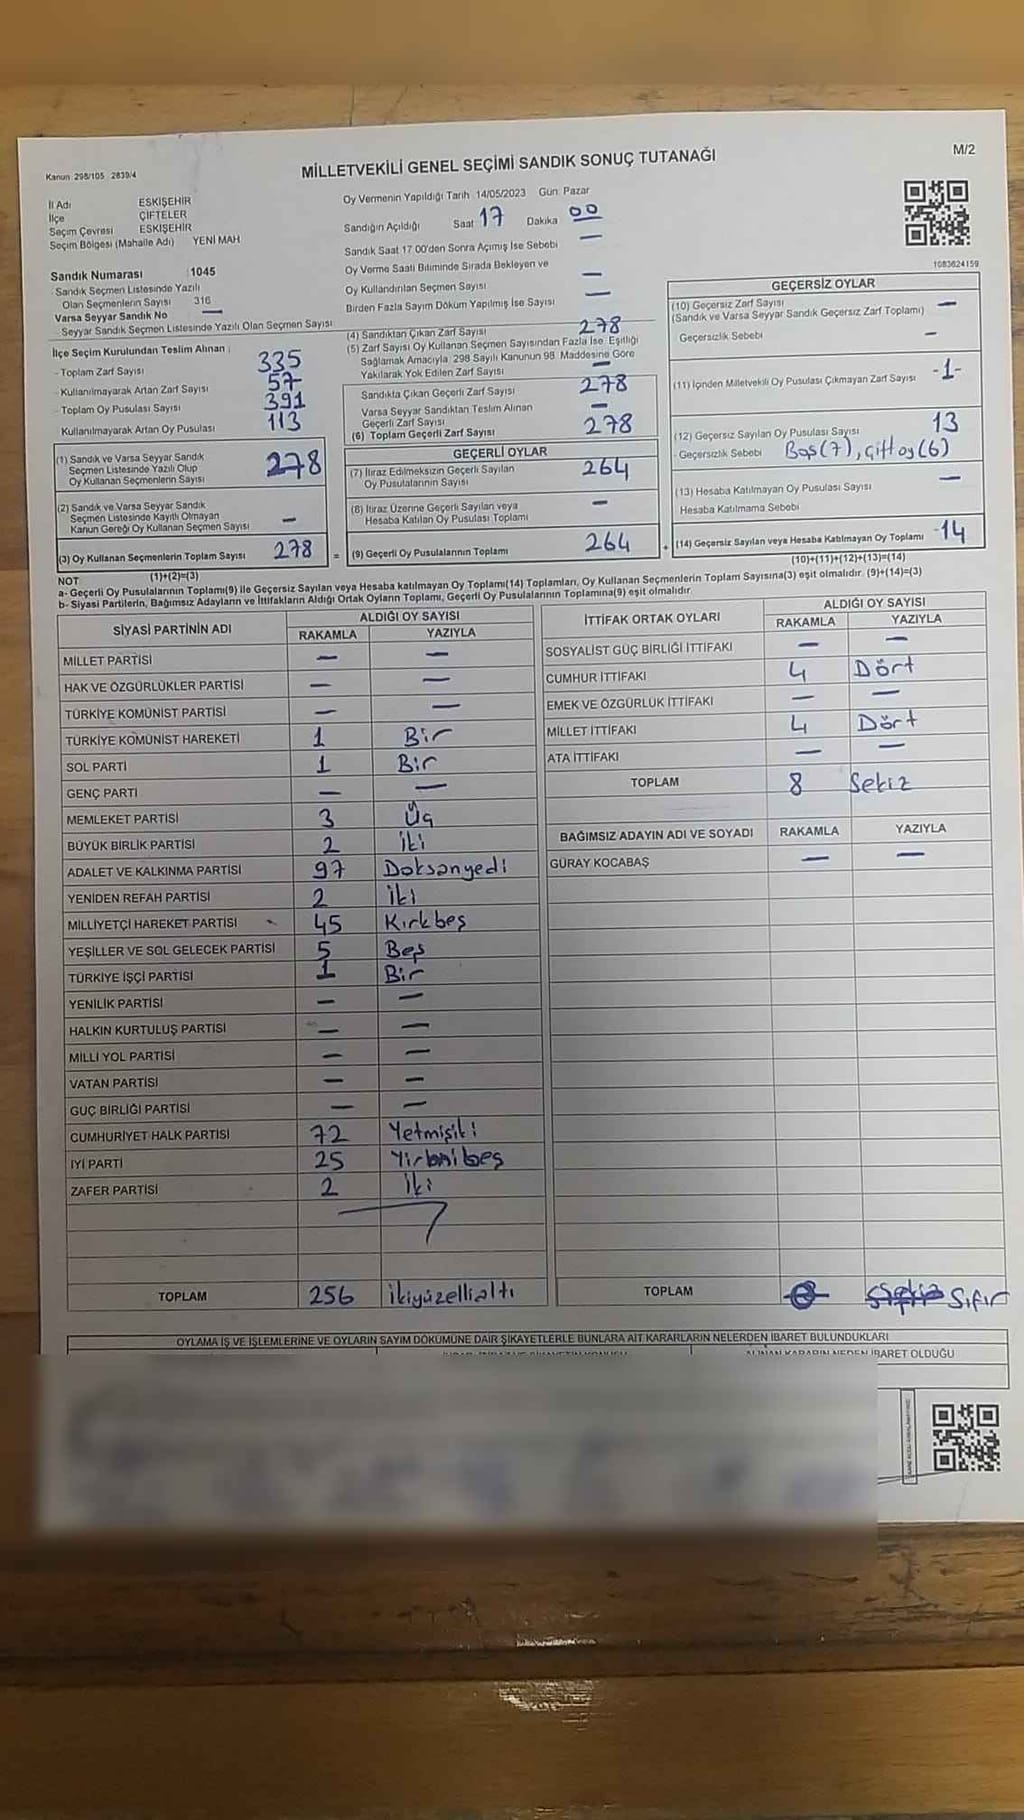 M/2
Kanun 298/105 2839/4
MİLLETVEKİLİ GENEL SEÇİMİ SANDIK SONUÇ TUTANAĞI
İl Adı ESKİŞEHİR
İlçe ÇİFTELER
Seçim Çevresi ESKİŞEHİR
Seçim Bölgesi (Mahalle Adı) YENİ MAH
Sandık Numarası 1045
Sandık Seçmen Listesinde Yazılı
Olan Seçmenlerin Sayısı 316
Varsa Seyyar Sandık No —
Seyyar Sandık Seçmen Listesinde Yazılı Olan Seçmen Sayısı
İlçe Seçim Kurulundan Teslim Alınan :
- Toplam Zarf Sayısı 335
- Kullanılmayarak Artan Zarf Sayısı 57
- Toplam Oy Pusulası Sayısı 391
Kullanılmayarak Artan Oy Pusulası 113
(1) Sandık ve Varsa Seyyar Sandık
Seçmen Listesinde Yazılı Olup
Oy Kullanan Seçmenlerin Sayısı 278
(2) Sandık ve Varsa Seyyar Sandık
Seçmen Listesinde Kayıtlı Olmayan
Kanun Gereği Oy Kullanan Seçmen Sayısı —
(3) Oy Kullanan Seçmenlerin Toplam Sayısı 278 =
(1)+(2)=(3)
Oy Vermenin Yapıldığı Tarih 14/05/2023 Gün: Pazar
Sandığın Açıldığı Saat 17 Dakika 00
Sandık Saat 17:00'den Sonra Açımış İse Sebebi —
Oy Verme Saati Bitiminde Sırada Bekleyen ve
Oy Kullandırılan Seçmen Sayısı —
Birden Fazla Sayım Döküm Yapılmış İse Sayısı —
(4) Sandıktan Çıkan Zarf Sayısı 278
(5) Zarf Sayısı Oy Kullanan Seçmen Sayısından Fazla İse, Eşitliği
Sağlamak Amacıyla, 298 Sayılı Kanunun 98. Maddesine Göre
Yakılarak Yok Edilen Zarf Sayısı —
Sandıkta Çıkan Geçerli Zarf Sayısı 278
Varsa Seyyar Sandıktan Teslim Alınan
Geçerli Zarf Sayısı —
(6) Toplam Geçerli Zarf Sayısı 278
GEÇERLİ OYLAR
(7) İtiraz Edilmeksizin Geçerli Sayılan
Oy Pusulalarının Sayısı 264
(8) İtiraz Üzerine Geçerli Sayılan veya
Hesaba Katılan Oy Pusulası Toplamı —
(9) Geçerli Oy Pusulalarının Toplamı 264 +
1083624159
GEÇERSİZ OYLAR
(10) Geçersiz Zarf Sayısı —
(Sandık ve Varsa Seyyar Sandık Geçersiz Zarf Toplamı)
Geçersizlik Sebebi —
(11) İçinden Milletvekili Oy Pusulası Çıkmayan Zarf Sayısı -1-
(12) Geçersiz Sayılan Oy Pusulası Sayısı 13
- Geçersizlik Sebebi Boş(7), çift oy(6)
(13) Hesaba Katılmayan Oy Pusulası Sayısı —
Hesaba Katılmama Sebebi
(14) Geçersiz Sayılan veya Hesaba Katılmayan Oy Toplamı -14
(10)+(11)+(12)+(13)=(14)
NOT:
a- Geçerli Oy Pusulalarının Toplamı(9) ile Geçersiz Sayılan veya Hesaba katılmayan Oy Toplamı(14) Toplamları, Oy Kullanan Seçmenlerin Toplam Sayısına(3) eşit olmalıdır. (9)+(14)=(3)
b- Siyasi Partilerin, Bağımsız Adayların ve İttifakların Aldığı Ortak Oyların Toplamı, Geçerli Oy Pusulalarının Toplamına(9) eşit olmalıdır
SİYASİ PARTİNİN ADI ALDIĞI OY SAYISI
RAKAMLA YAZIYLA
MİLLET PARTİSİ — —
HAK VE ÖZGÜRLÜKLER PARTİSİ — —
TÜRKİYE KOMÜNİST PARTİSİ — —
TÜRKİYE KOMÜNİST HAREKETİ 1 Bir
SOL PARTİ 1 Bir
GENÇ PARTİ — —
MEMLEKET PARTİSİ 3 Üç
BÜYÜK BİRLİK PARTİSİ 2 İki
ADALET VE KALKINMA PARTİSİ 97 Doksanyedi
YENİDEN REFAH PARTİSİ 2 İki
MİLLİYETÇİ HAREKET PARTİSİ 45 Kırkbeş
YEŞİLLER VE SOL GELECEK PARTİSİ 5 Beş
TÜRKİYE İŞÇİ PARTİSİ 1 Bir
YENİLİK PARTİSİ — —
HALKIN KURTULUŞ PARTİSİ — —
MİLLİ YOL PARTİSİ — —
VATAN PARTİSİ — —
GÜÇ BİRLİĞİ PARTİSİ — —
CUMHURİYET HALK PARTİSİ 72 Yetmişiki
İYİ PARTİ 25 Yirmibeş
ZAFER PARTİSİ 2 İki
TOPLAM 256 İkiyüzellialtı
İTTİFAK ORTAK OYLARI ALDIĞI OY SAYISI
RAKAMLA YAZIYLA
SOSYALİST GÜÇ BİRLİĞİ İTTİFAKI — —
CUMHUR İTTİFAKI 4 Dört
EMEK VE ÖZGÜRLÜK İTTİFAKI — —
MİLLET İTTİFAKI 4 Dört
ATA İTTİFAKI — —
TOPLAM 8 Sekiz
BAĞIMSIZ ADAYIN ADI VE SOYADI RAKAMLA YAZIYLA
GÜRAY KOCABAŞ — —
TOPLAM Sıfır
OYLAMA İŞ VE İŞLEMLERİNE VE OYLARIN SAYIM DÖKÜMÜNE DAİR ŞİKAYETLERLE BUNLARA AİT KARARLARIN NELERDEN İBARET BULUNDUKLARI
ALINAN KARARIN NEDEN İBARET OLDUĞU